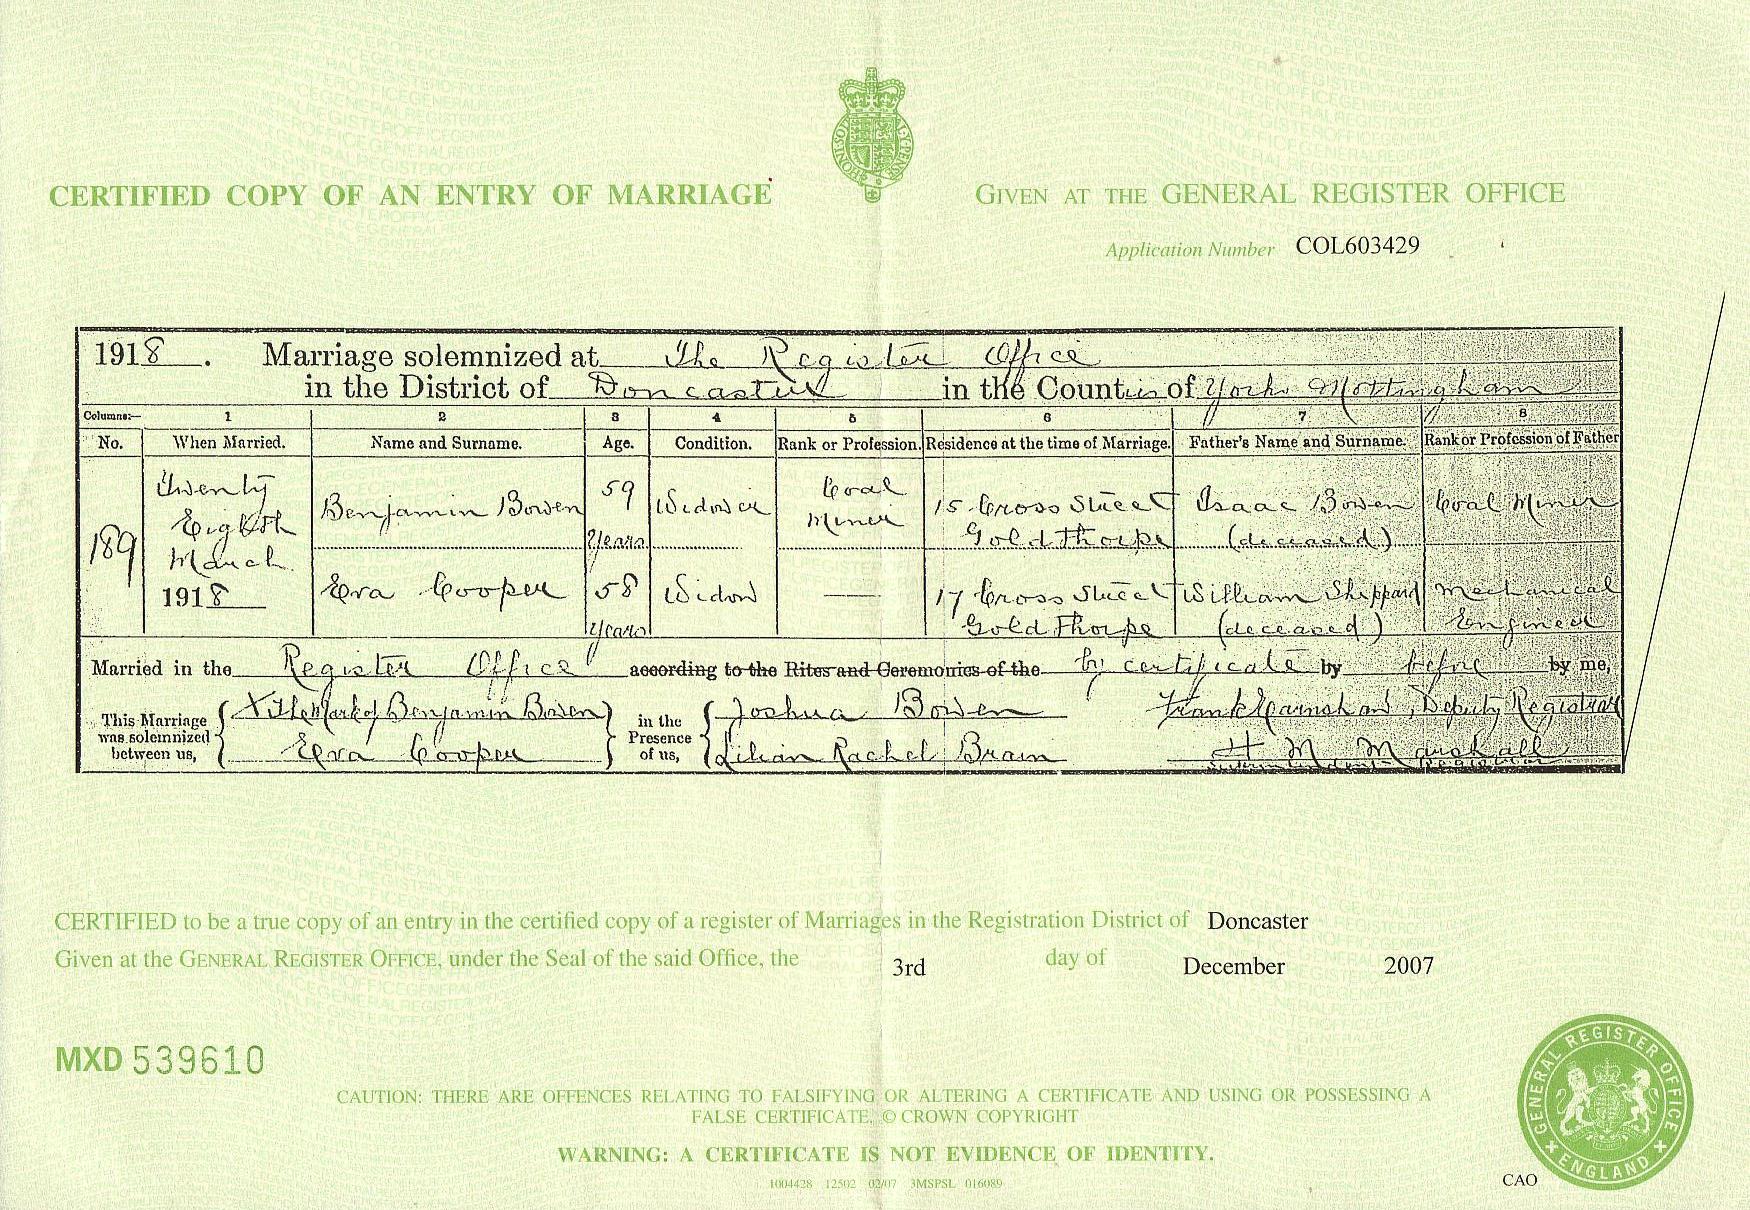 HONI·SOIT·QUI·MAL·Y·PENSE
CERTIFIED COPY OF AN ENTRY OF MARRIAGE
GIVEN AT THE GENERAL REGISTER OFFICE
Application Number COL603429
1918. Marriage solemnized at The Register Office
in the District of Doncaster in the Counties of York Nottingham
Columns:— 1 2 3 4 5 6 7 8
No. When Married. Name and Surname. Age. Condition. Rank or Profession. Residence at the time of Marriage. Father's Name and Surname. Rank or Profession of Father
189
Twenty
Eighth
March
1918
Benjamin Bowen
59
Years
Widower
Coal
Miner
15 Cross Street
Goldthorpe
Isaac Bowen
(deceased)
Coal Miner
Eva Cooper
58
Years
Widow
—
17 Cross Street
Goldthorpe
William Sheppard
(deceased)
Mechanical
Engineer
Married in the Register Office according to the Rites and Ceremonies of the by certificate by before by me,
This Marriage
was solemnized
between us,
X The Mark of Benjamin Bowen
Eva Cooper
in the
Presence
of us,
Joshua Bowen
Lilian Rachel Bram
Frank Earnshaw, Deputy Registrar
H M Marshall
Superintendent Registrar
CERTIFIED to be a true copy of an entry in the certified copy of a register of Marriages in the Registration District of Doncaster
Given at the GENERAL REGISTER OFFICE, under the Seal of the said Office, the 3rd day of December 2007
MXD 539610
CAUTION: THERE ARE OFFENCES RELATING TO FALSIFYING OR ALTERING A CERTIFICATE AND USING OR POSSESSING A
FALSE CERTIFICATE. © CROWN COPYRIGHT
WARNING: A CERTIFICATE IS NOT EVIDENCE OF IDENTITY.
1004428 12502 02/07 3MSPSL 016089
CAO
GENERAL REGISTER OFFICE
ENGLAND